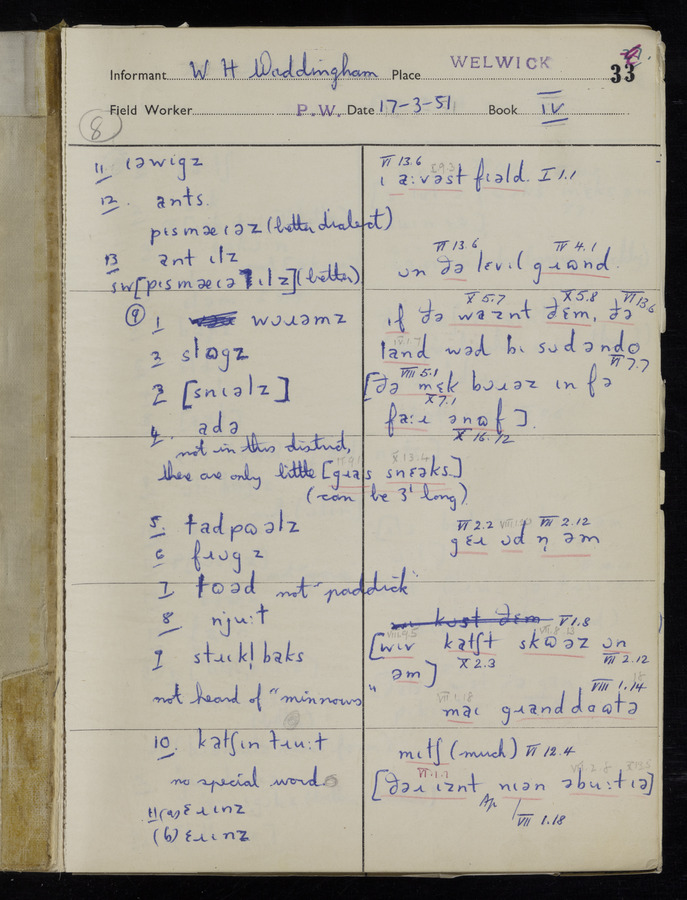 Informant W H Waddingham Place WELWICK 33
Field Worker P.W. Date 17-3-51 Book IV
8
11 ıəwıgz
12. ants.
pısmæıəz (better dialect)
13 ant ılz
sw[pısmæıə ılz] (better)
9 1 wɔɹəmz
2 slɒgz
3 [snıəlz]
4. adə
not in this district,
there are only little [gɹas snɛəks]
(can be 3' long)
5. tadpɷəlz
6 fɹɔgz
7 toəd not "paddick"
8 njuːt
9 stɹıkl̩baks
not heard of "minnows"
10. katʃın tɹuːt
no special word.
11(a) ɛɹınz
(b) ɛɹınz
VI 13.6
ı aːvəst fıəld. I 1.1
VI 13 6 IV 4.1
ɔn ðə lɛvıl gɹɷnd.
X 5.7 X 5.8 VI 13 6
ıf ðə waznt ðɛm, ðə
land wəd bı sɔdəndɷ
VI 7.7
VIII 5.1
[ðə mɛk bɔɹəz ın fə
X 7.1
faːɹ ənɷf].
X 16.12
VI 2.2 VII 2.12
gɛɹ ɔd n̩ əm
kɔst ðɛm V 1.8
[wıv katʃt skɷəz ɔn
X 2.3 VII 2.12
əm]
VIII 1.14
maı gɹanddaɷtə
mıtʃ (much) VI 12.4
VI 1.7
[ðəɹ ıznt nıən əbuːtıə]
Ap VII 1.18